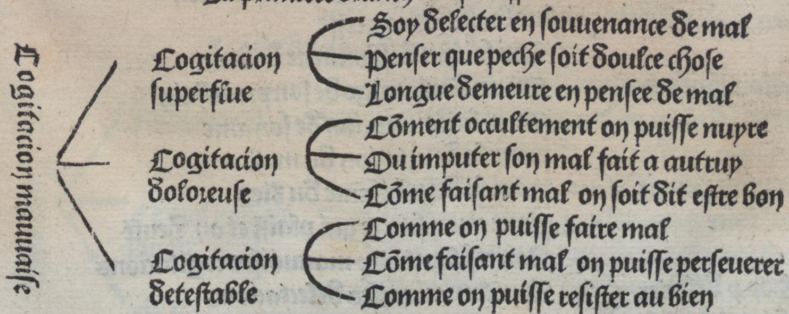 Cogitacion mauuaise
Cogitacion
superflue
Soy delecter en souuenance de mal
Penser que peche soit doulce chose
Longue demeure en pensee de mal
Cogitacion
doloreuse
Cõment occultement on puisse nuyre
Ou imputer son mal fait a autruy
Cõme faisant mal on soit dit estre bon
Cogitacion
detestable
Comme on puisse faire mal
Cõme faisant mal on puisse perseuerer
Comme on puisse resister au bien